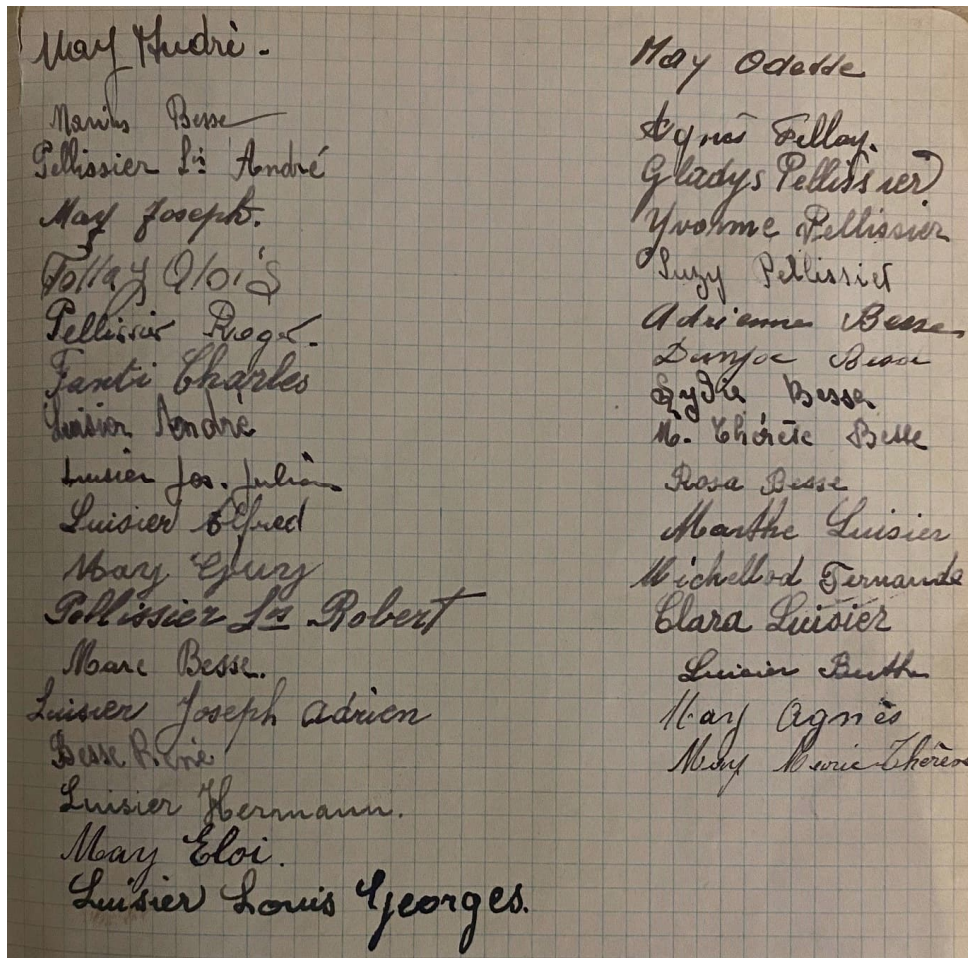 May André.
Marius Besse
Pellissier Ls André
May Joseph.
Fellay Aloïs
Pellissier Roger.
Fanti Charles
Luisier André
Luisier Jos. Julien
Luisier Alfred
May Guy
Pellissier Ls Robert
Marc Besse.
Luisier Joseph Adrien
Besse René
Luisier Hermann.
May Eloi.
Luisier Louis Georges.
May Odette
Agnès Fellay.
Gladys Pellissier
Yvonne Pellissier
Suzy Pellissier
Adrienne Besse
Besse
Lydie Besse
M. Thérèse Besse
Rosa Besse
Marthe Luisier
Michellod Fernande
Clara Luisier
Luisier Berthe
May Agnès
May Marie-Thérèse